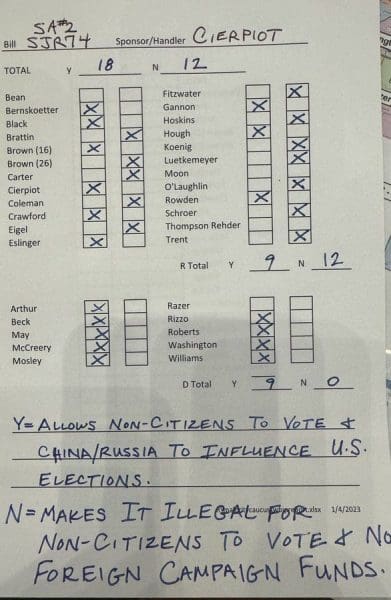 SA#2
Bill SJR74 Sponsor/Handler CIERPIOT
TOTAL Y 18 N 12
Bean
Bernskoetter X
Black X
Brattin X
Brown (16) X
Brown (26) X
Carter X
Cierpiot X
Coleman X
Crawford X
Eigel X
Eslinger X
Fitzwater X
Gannon X
Hoskins X
Hough X
Koenig X
Luetkemeyer X
Moon
O'Laughlin X
Rowden X
Schroer X
Thompson Rehder
Trent X
R Total Y 9 N 12
Arthur X
Beck X
May X
McCreery X
Mosley X
Razer
Rizzo X
Roberts X
Washington X
Williams X
D Total Y 9 N 0
Y= ALLOWS NON-CITIZENS TO VOTE &
CHINA/RUSSIA TO INFLUENCE U.S.
ELECTIONS.
1/4/2023
N= MAKES IT ILLEGAL FOR
NON-CITIZENS TO VOTE & NO
FOREIGN CAMPAIGN FUNDS.